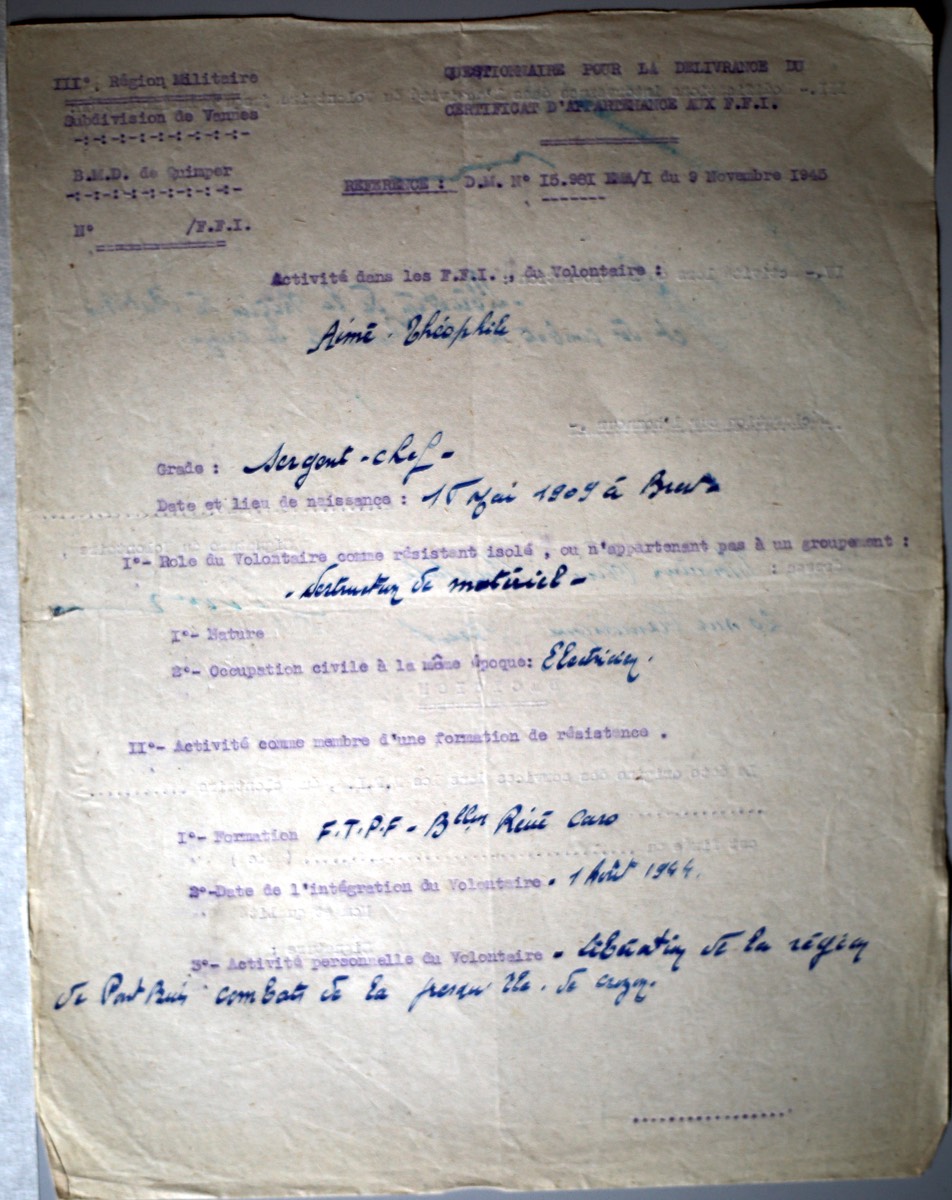 III°. Région Militaire
Subdivision de Vannes
-:-:-:-:-:-:-:-:-:-
B.M.D. de Quimper
-:-:-:-:-:-:-:-:-:-
N° /F.F.I.
QUESTIONNAIRE POUR LA DELIVRANCE DU
CERTIFICAT D'APPARTENANCE AUX F.F.I.
REFERENCE : D.M. N° I5.98I EMA/I du 9 Novembre I945
-------
Activité dans les F.F.I. , du Volontaire :
Aimé - Théophile
Grade : Sergent-chef -
Date et lieu de naissance : 15 Mai 1909 à Brest
I°- Role du Volontaire comme résistant isolé , ou n'appartenant pas à un groupement :
- Destruction de matériel -
I°- Nature
2°- Occupation civile à la même époque: Electricien.
II°- Activité comme membre d'une formation de résistance .
I°- Formation F.T.P.F - Bllon René Caro
2°-Date de l'intégration du Volontaire - 1 Août 1944.
3°- Activité personnelle du Volontaire - Libération de la région
de combats de la presqu'île de Crozon.
..................